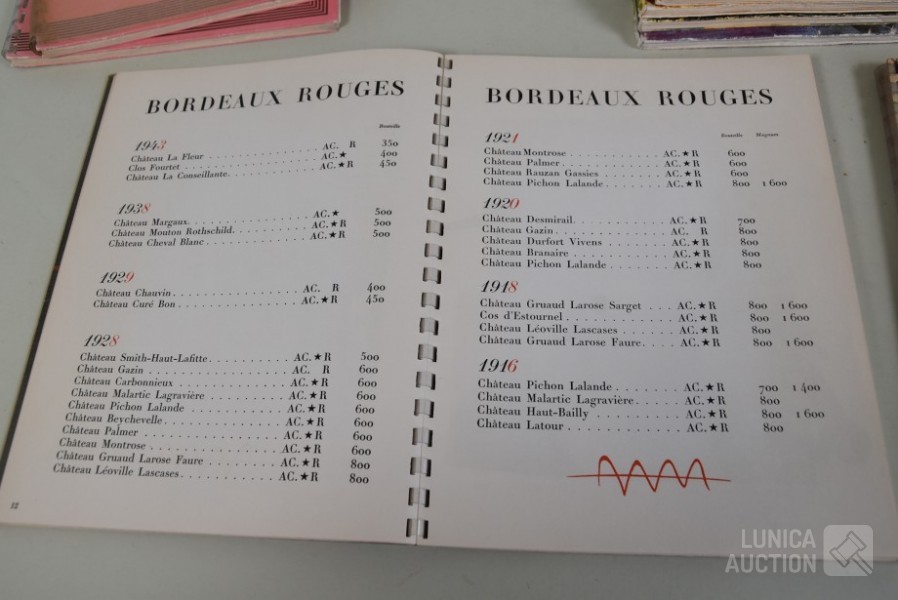 BORDEAUX ROUGES
Bouteille
1943
Château La Fleur . . . . . . . . . . . . AC. R 350
Clos Fourtet . . . . . . . . . . . . . . AC.★ 400
Château La Conseillante. . . . . . . . . AC.★R 450
1938
Château Margaux. . . . . . . . . . . . . AC.★ 500
Château Mouton Rothschild. . . . . . . . AC.★R 500
Château Cheval Blanc . . . . . . . . . . AC.★R 500
1929
Château Chauvin . . . . . . . . . . . . . AC. R 400
Château Curé Bon . . . . . . . . . . . . AC.★R 450
1928
Château Smith-Haut-Lafitte . . . . . . . AC.★R 500
Château Gazin . . . . . . . . . . . . . . AC. R 600
Château Carbonnieux . . . . . . . . . . . AC.★R 600
Château Malartic Lagravière . . . . . . . AC.★R 600
Château Pichon Lalande . . . . . . . . . AC.★R 600
Château Beychevelle . . . . . . . . . . . AC.★R 600
Château Palmer . . . . . . . . . . . . . AC.★R 600
Château Montrose . . . . . . . . . . . . AC.★R 600
Château Gruaud Larose Faure . . . . . . . AC.★R 800
Château Léoville Lascases . . . . . . . . AC.★R 800
12
BORDEAUX ROUGES
Bouteille Magnum
1921
Château Montrose . . . . . . . . . . . . AC.★R 600
Château Palmer . . . . . . . . . . . . . AC.★R 600
Château Rauzan Gassies . . . . . . . . . AC.★R 600
Château Pichon Lalande . . . . . . . . . AC.★R 800 1 600
1920
Château Desmirail . . . . . . . . . . . . AC.★R 700
Château Gazin . . . . . . . . . . . . . . AC. R 800
Château Durfort Vivens . . . . . . . . . AC.★R 800
Château Branaire . . . . . . . . . . . . AC.★R 800
Château Pichon Lalande . . . . . . . . . AC.★R 800
1918
Château Gruaud Larose Sarget . . . AC.★R 800 1 600
Cos d'Estournel . . . . . . . . . . . . . AC.★R 800 1 600
Château Léoville Lascases . . . . . . . . AC.★R 800
Château Gruaud Larose Faure . . . . AC.★R 800 1 600
1916
Château Pichon Lalande . . . . . . . . . AC.★R 700 1 400
Château Malartic Lagravière . . . . . AC.★R 800
Château Haut-Bailly . . . . . . . . . . . AC.★R 800 1 600
Château Latour . . . . . . . . . . . . . AC.★R 800
LUNICA
AUCTION